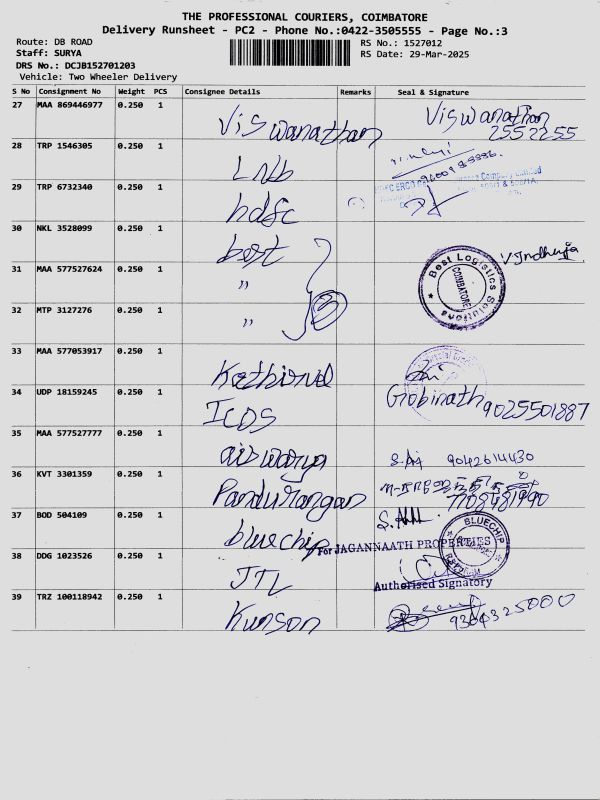 THE PROFESSIONAL COURIERS, COIMBATORE
Delivery Runsheet - PC2 - Phone No.:0422-3505555 - Page No.:3
Route: DB ROAD
RS No.: 1527012
Staff: SURYA
RS Date: 29-Mar-2025
DRS No.: DCJB152701203
Vehicle: Two Wheeler Delivery
S No Consignment No Weight PCS Consignee Details Remarks Seal & Signature
27 MAA 869446977 0.250 1 Viswanathan Viswanathan
2552255
28 TRP 1546305 0.250 1 LNB
29 TRP 6732340 0.250 1 hdfc
30 NKL 3528099 0.250 1 best
Best Logistics Solutions
COIMBATORE
31 MAA 577527624 0.250 1 "
32 MTP 3127276 0.250 1 " 3
33 MAA 577053917 0.250 1 Kathirvel
34 UDP 18159245 0.250 1 ICDS Gobinath 9025501887
35 MAA 577527777 0.250 1 aiswarya 9042614430
36 KVT 3301359 0.250 1 Pandurangan 7708481990
37 BOD 504109 0.250 1 bluechip
BLUECHIP
For JAGANNAATH PROPERTIES
38 DDG 1023526 0.250 1 JTL
Authorised Signatory
39 TRZ 100118942 0.250 1 Kunson